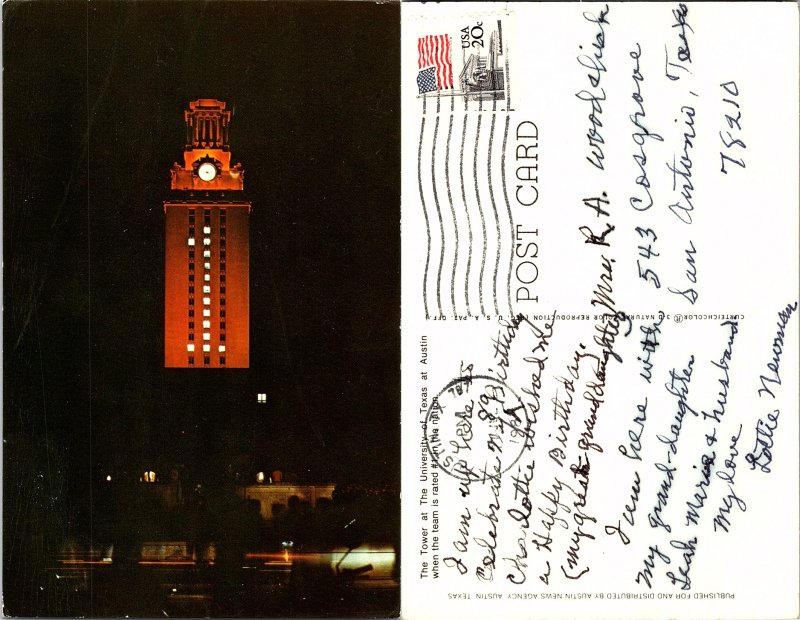 The Tower at The University of Texas at Austin
when the team is rated #1 in the nation.
I am up here to
celebrate my 89 Birthday
Charlotte wished me
a Happy Birthday.
(my great granddaughter)
I am here with
my grand-daughter
Leah Marie & husband
My love
Lottie Newman
POST CARD
USA
20c
Mrs. R. A. Woodlish
543 Cosgrove
San Antonio, Texas
78210
CURTEICHCOLOR® 3-D NATURAL COLOR REPRODUCTION (REG. U.S.A. PAT. OFF.)
PUBLISHED FOR AND DISTRIBUTED BY AUSTIN NEWS AGENCY, AUSTIN, TEXAS